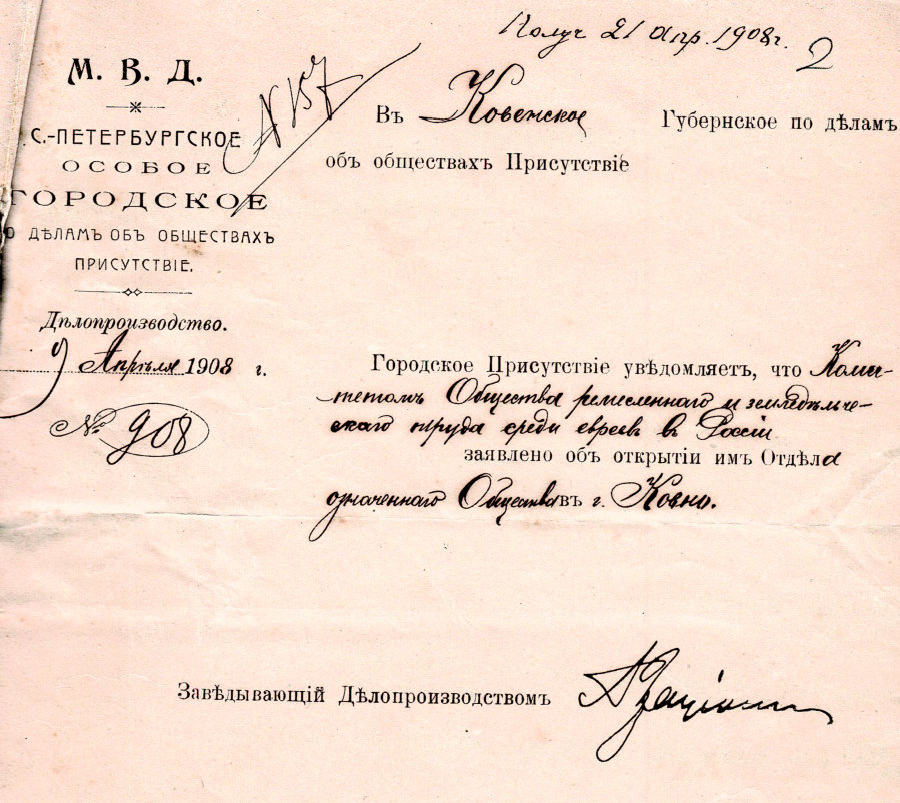 Получ 21 Апр. 1908 г.
2
М. В. Д.
С.-ПЕТЕРБУРГСКОЕ
ОСОБОЕ
ГОРОДСКОЕ
О ДѢЛАМЪ ОБЪ ОБЩЕСТВАХЪ
ПРИСУТСТВІЕ.
Дѣлопроизводство.
9 Апрѣля 1908 г.
№ 908
N 157
Въ Ковенское Губернское по дѣламъ
объ обществахъ Присутствіе
Городское Присутствіе увѣдомляетъ, что Коми-
тетомъ Общества ремесленнаго и земледѣльче-
скаго труда среди евреевъ въ Россіи
заявлено объ открытіи имъ Отдѣла
означеннаго Общества въ г. Ковно.
Завѣдывающій Дѣлопроизводствомъ